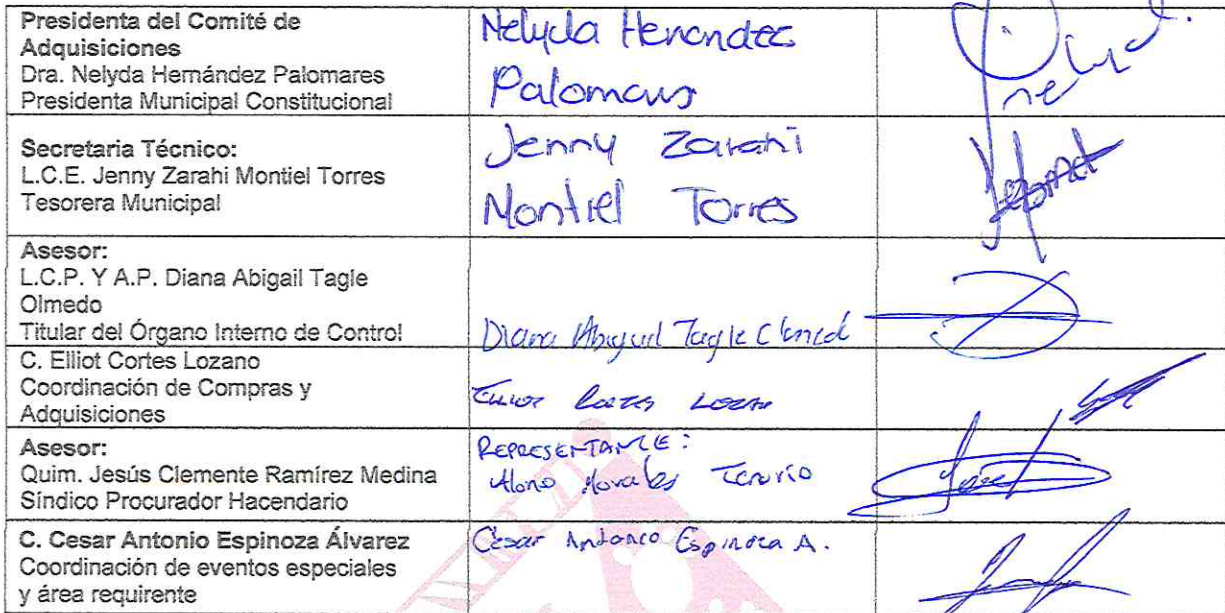 Presidenta del Comité de
Adquisiciones
Dra. Nelyda Hernández Palomares
Presidenta Municipal Constitucional
Nelyda Henandez
Palomares
Nelyd
Secretaria Técnico:
L.C.E. Jenny Zarahi Montiel Torres
Tesorera Municipal
Jenny Zarahi
Montiel Torres
Asesor:
L.C.P. Y A.P. Diana Abigail Tagle
Olmedo
Titular del Órgano Interno de Control
Diana Abigail Tagle Olmedo
C. Elliot Cortes Lozano
Coordinación de Compras y
Adquisiciones
Elliot Cortes Lozano
Asesor:
Quim. Jesús Clemente Ramírez Medina
Síndico Procurador Hacendario
REPRESENTANTE:
Morales Tenorio
C. Cesar Antonio Espinoza Álvarez
Coordinación de eventos especiales
y área requirente
Cesar Antonio Espinoza A.